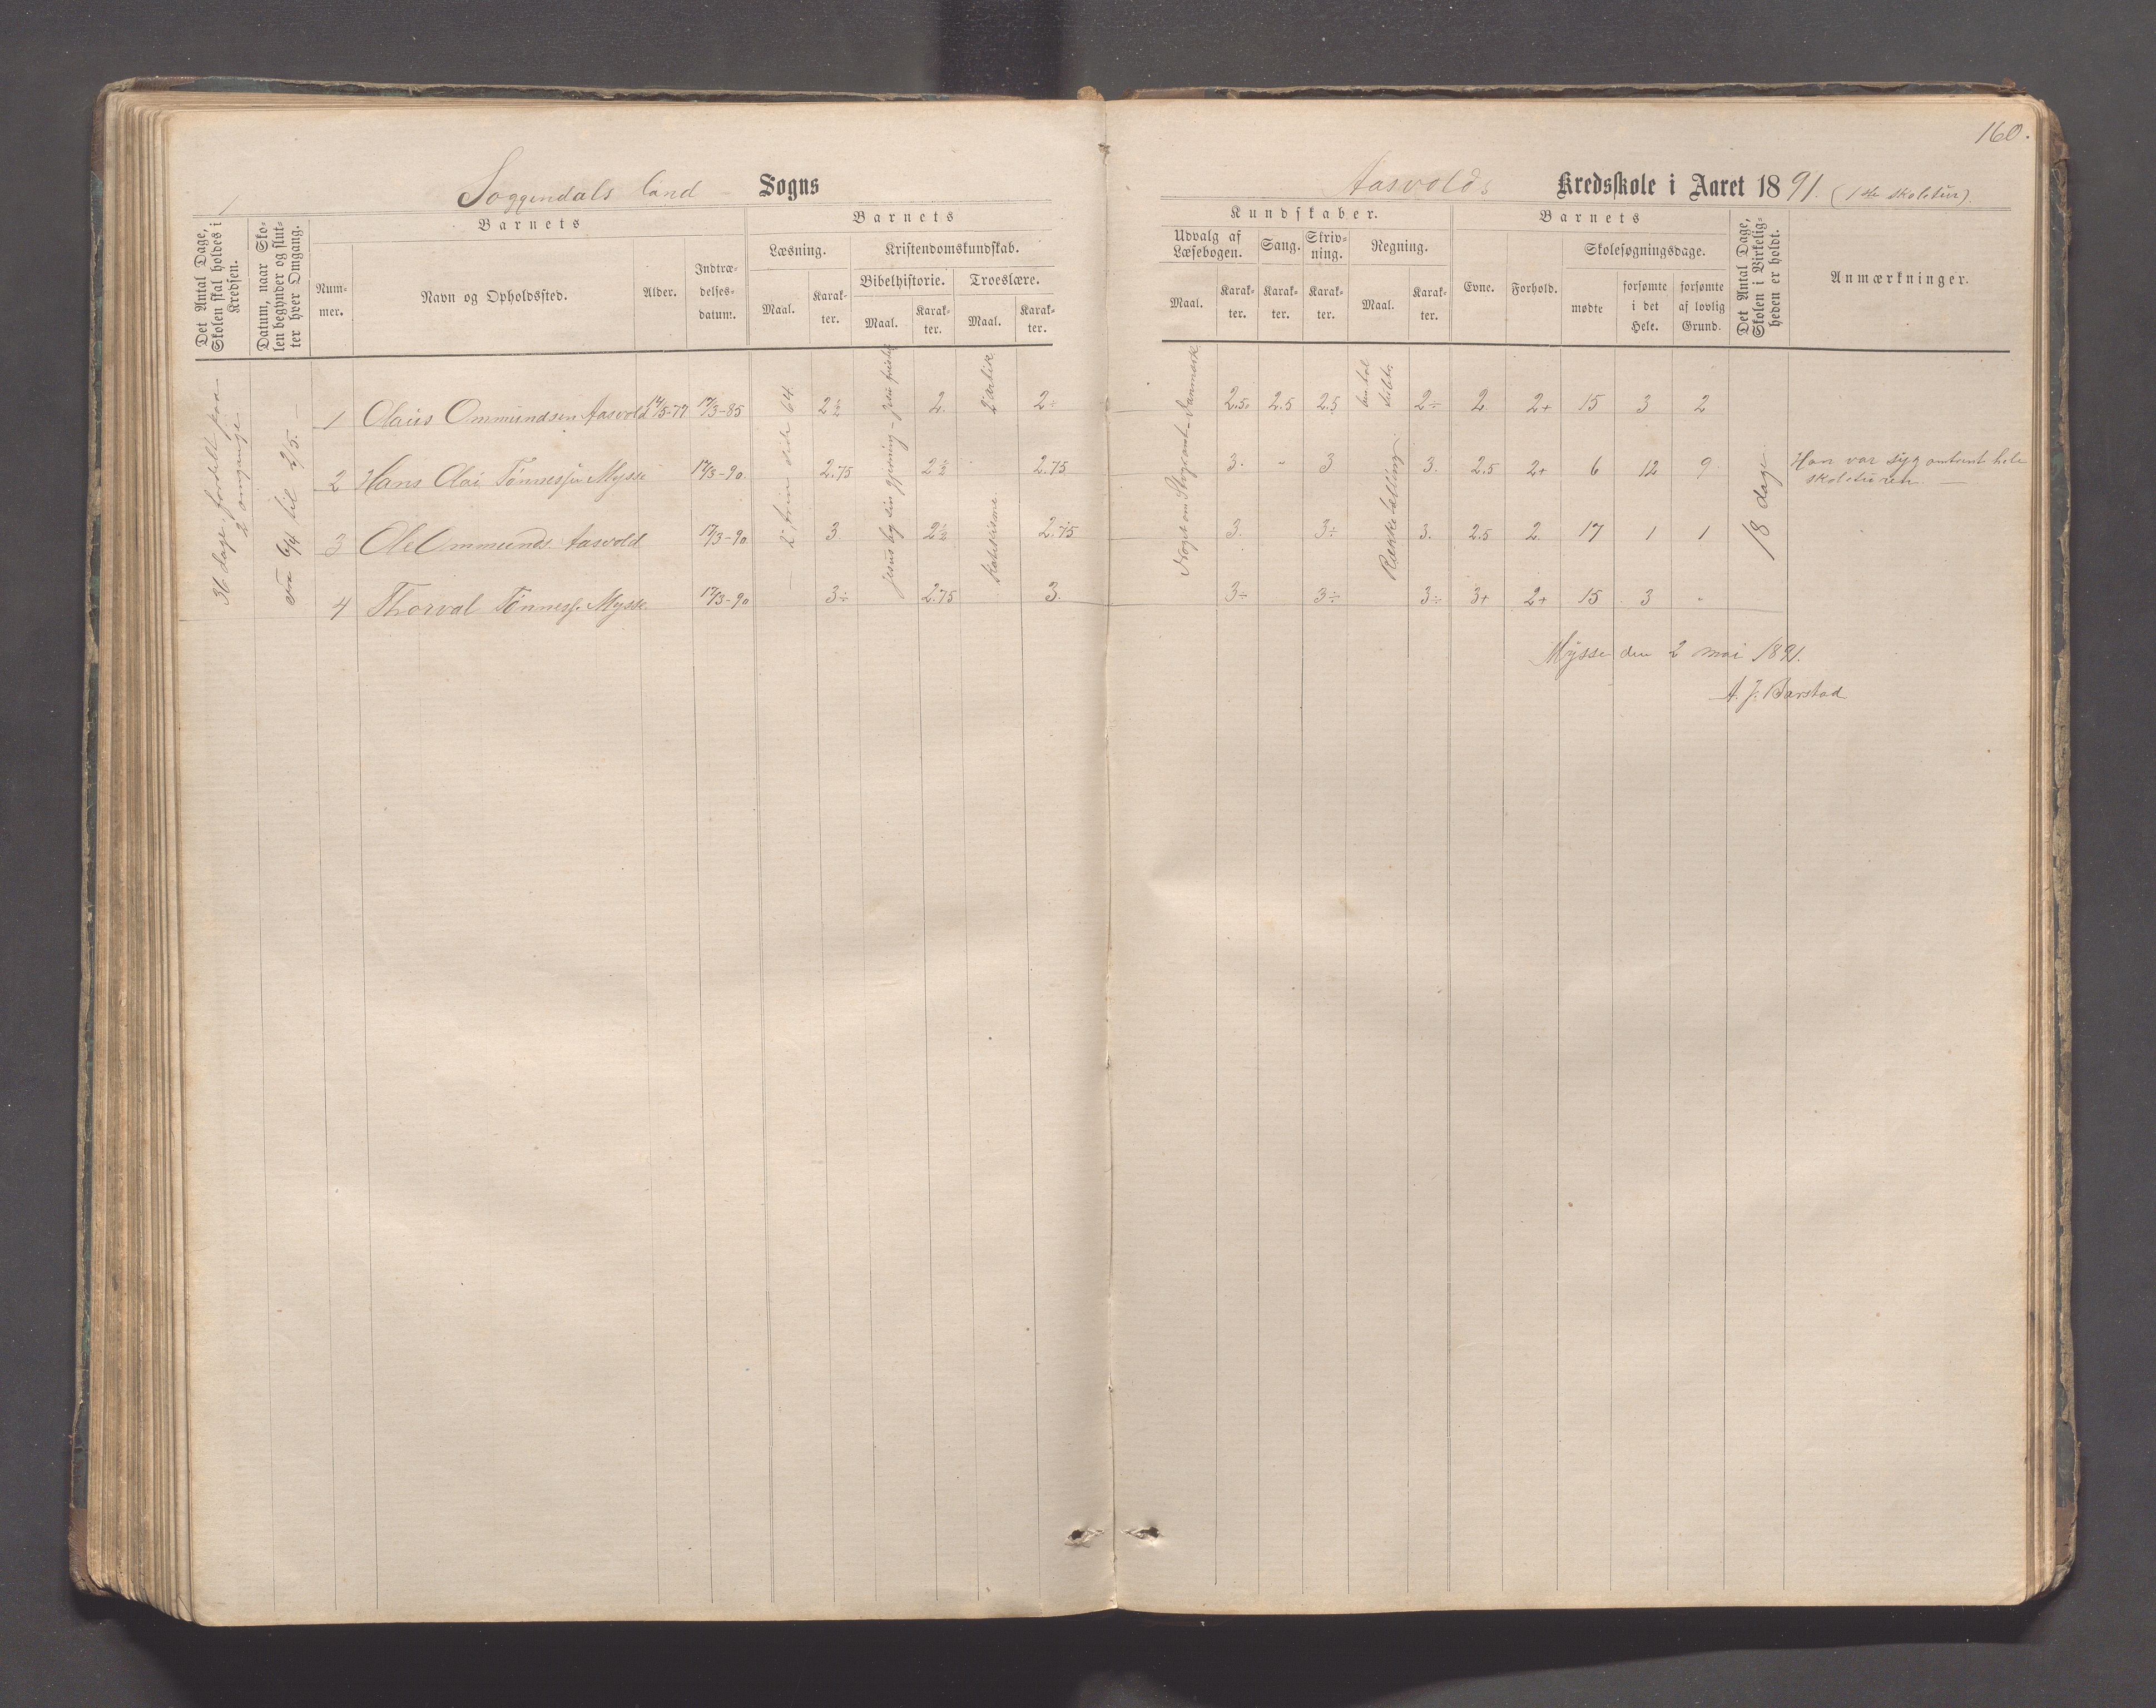 160.
Soggendals land Sogns
Aasvolds Kredsskole i Aaret 1891. (1ste skoletur).
Det Antal Dage, Skolen skal holdes i Kredsen.
Datum, naar Skolen begynder og slutter hver Omgang.
Barnets
Nummer.
Navn og Opholdssted.
Alder.
Indtrædelsesdatum.
Barnets
Læsning.
Maal.
Karakter.
Kristendomskundskab.
Bibelhistorie.
Maal.
Karakter.
Troeslære.
Maal.
Karakter.
Kundskaber.
Udvalg af Læsebogen.
Maal.
Karakter.
Sang.
Karakter.
Skrivning.
Karakter.
Regning.
Maal.
Karakter.
Barnets
Evne.
Forhold.
Skolesøgningsdage.
mødte
forsømte i det Hele.
forsømte af lovlig Grund.
Det Antal Dage, Skolen i Virkeligheden er holdt.
Anmærkninger.
36 dage fordelt paa 2 omgange
Fra 6/4 til 2/5. —
1 Olaus Ommundsen Aasvold 14/5-77 17/3-85 2½ 2. 2÷ 2.5. 2.5 2.5 2÷ 2. 2+ 15 3 2
2 Hans Olai Tønnessen Mysse 17/3-90. 2.75 2½ 2.75 3. " 3 3. 2.5 2+ 6 12 9 Han var syg omtrent hele skoleturen. —
3 Ole Ommunds. Aasvold 17/3-90 3. 2½ 2.75 3. 3÷ 3. 2.5 2. 17 1 1
4 Thorval Tønness. Mysse. 17/3-90 3÷ 2.75 3. 3÷ 3÷ 3÷ 3+ 2+ 15 3 "
side 64
2 artik
Katekisme.
Noget om Danmark
Rækketælling
18 dage
Mysse den 2 mai 1891.
A. J. Barstad